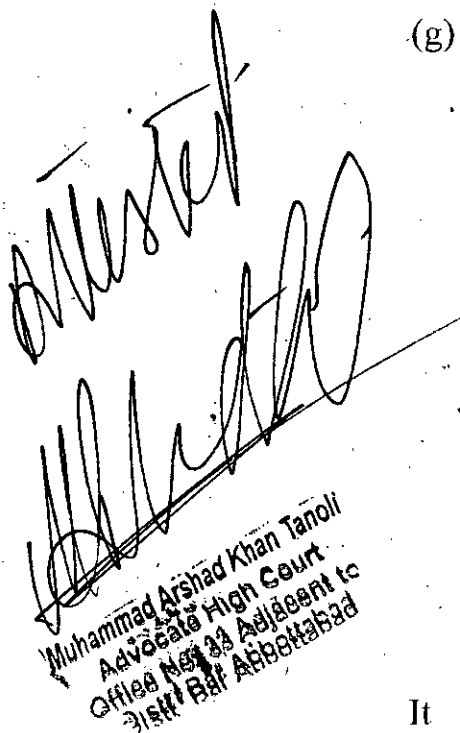 (g)
Attested
Muhammad Arshad Khan Tanoli
Advocate High Court
Office No# 33 Adjacent to
Distt Bar Abbottabad
It